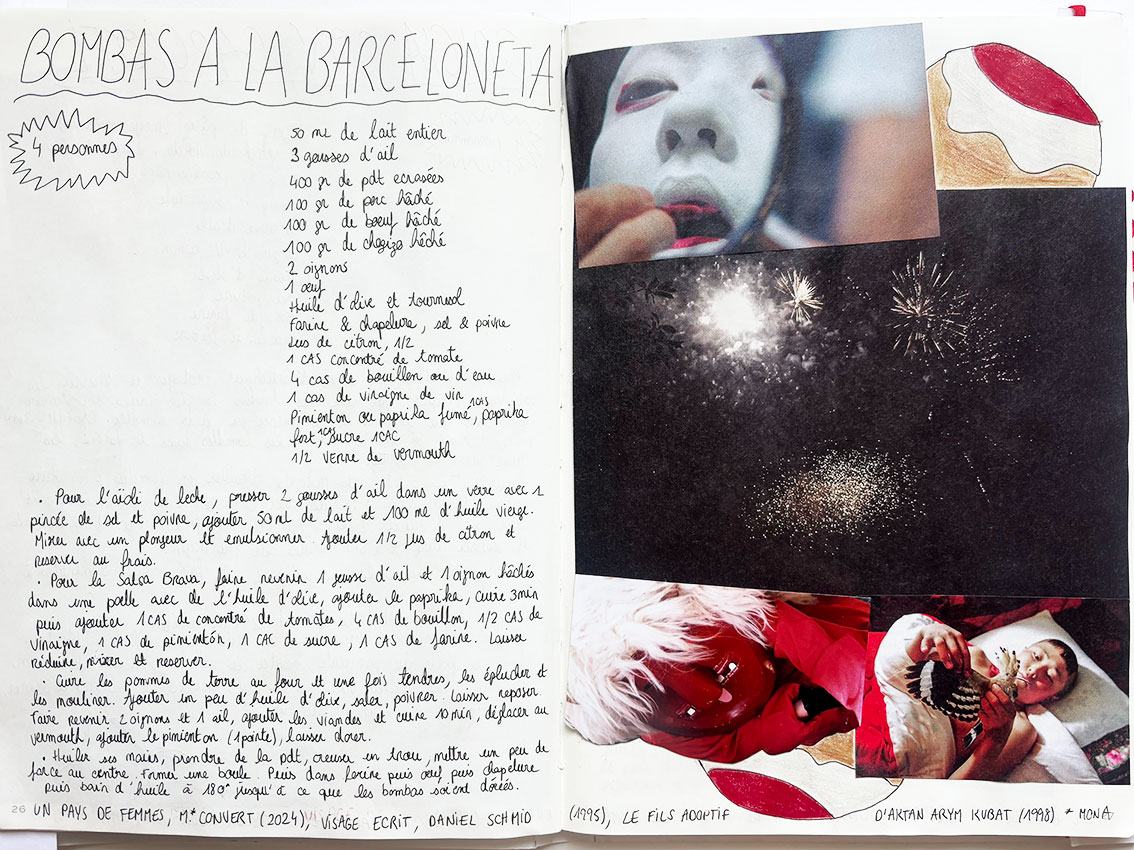 BOMBAS A LA BARCELONETA
4 personnes
50 mL de lait entier
3 gousses d'ail
400 gr de pdt ecrasées
100 gr de porc hâché
100 gr de boeuf hâché
100 gr de chorizo hâché
2 oignons
1 œuf
Huile d'olive et tournesol
Farine & chapelure, sel & poivre
Jus de citron, 1/2
1 CAS concentré de tomate
4 cas de bouillon ou d'eau
1 cas de vinaigre de vin
Pimienton ou paprika fumé, 1CAS paprika
fort, 1CAS sucre 1CAC
1/2 verre de vermouth
• Pour l'aïoli de leche, presser 2 gousses d'ail dans un verre avec 1
pincée de sel et poivre, ajouter 50 mL de lait et 100 ml d'huile vierge.
Mixer avec un plongeur et emulsionner. Ajouter 1/2 jus de citron et
reserver au frais.
• Pour la Salsa Brava, faire revenir 1 gousse d'ail et 1 oignon hâchés
dans une poelle avec de l'huile d'olive, ajouter le paprika, cuire 3min
puis ajouter 1 CAS de concentré de tomates, 4 CAS de bouillon, 1/2 CAS de
vinaigre, 1 CAS de pimientón, 1 CAC de sucre, 1 CAS de farine. Laisser
réduire, mixer et reserver.
• Cuire les pommes de terre au four et une fois tendres, les éplucher et
les mouliner. Ajouter un peu d'huile d'olive, saler, poivrer. Laisser reposer.
Faire revenir 2 oignons et 1 ail, ajouter les viandes et cuire 10 min, déglacer au
vermouth, ajouter le pimienton (1 pointe), laisser dorer.
• Huiler ses mains, prendre de la pdt, creuser un trou, mettre un peu de
farce au centre. Former une boule. Puis dans farine puis œuf puis chapelure
puis bain d'huile à 180° jusqu'à ce que les bombas soient dorées.
26 UN PAYS DE FEMMES, M* CONVERT (2024), VISAGE ECRIT, DANIEL SCHMID (1995), LE FILS ADOPTIF D'AKTAN ARYM KUBAT (1998) * MONA